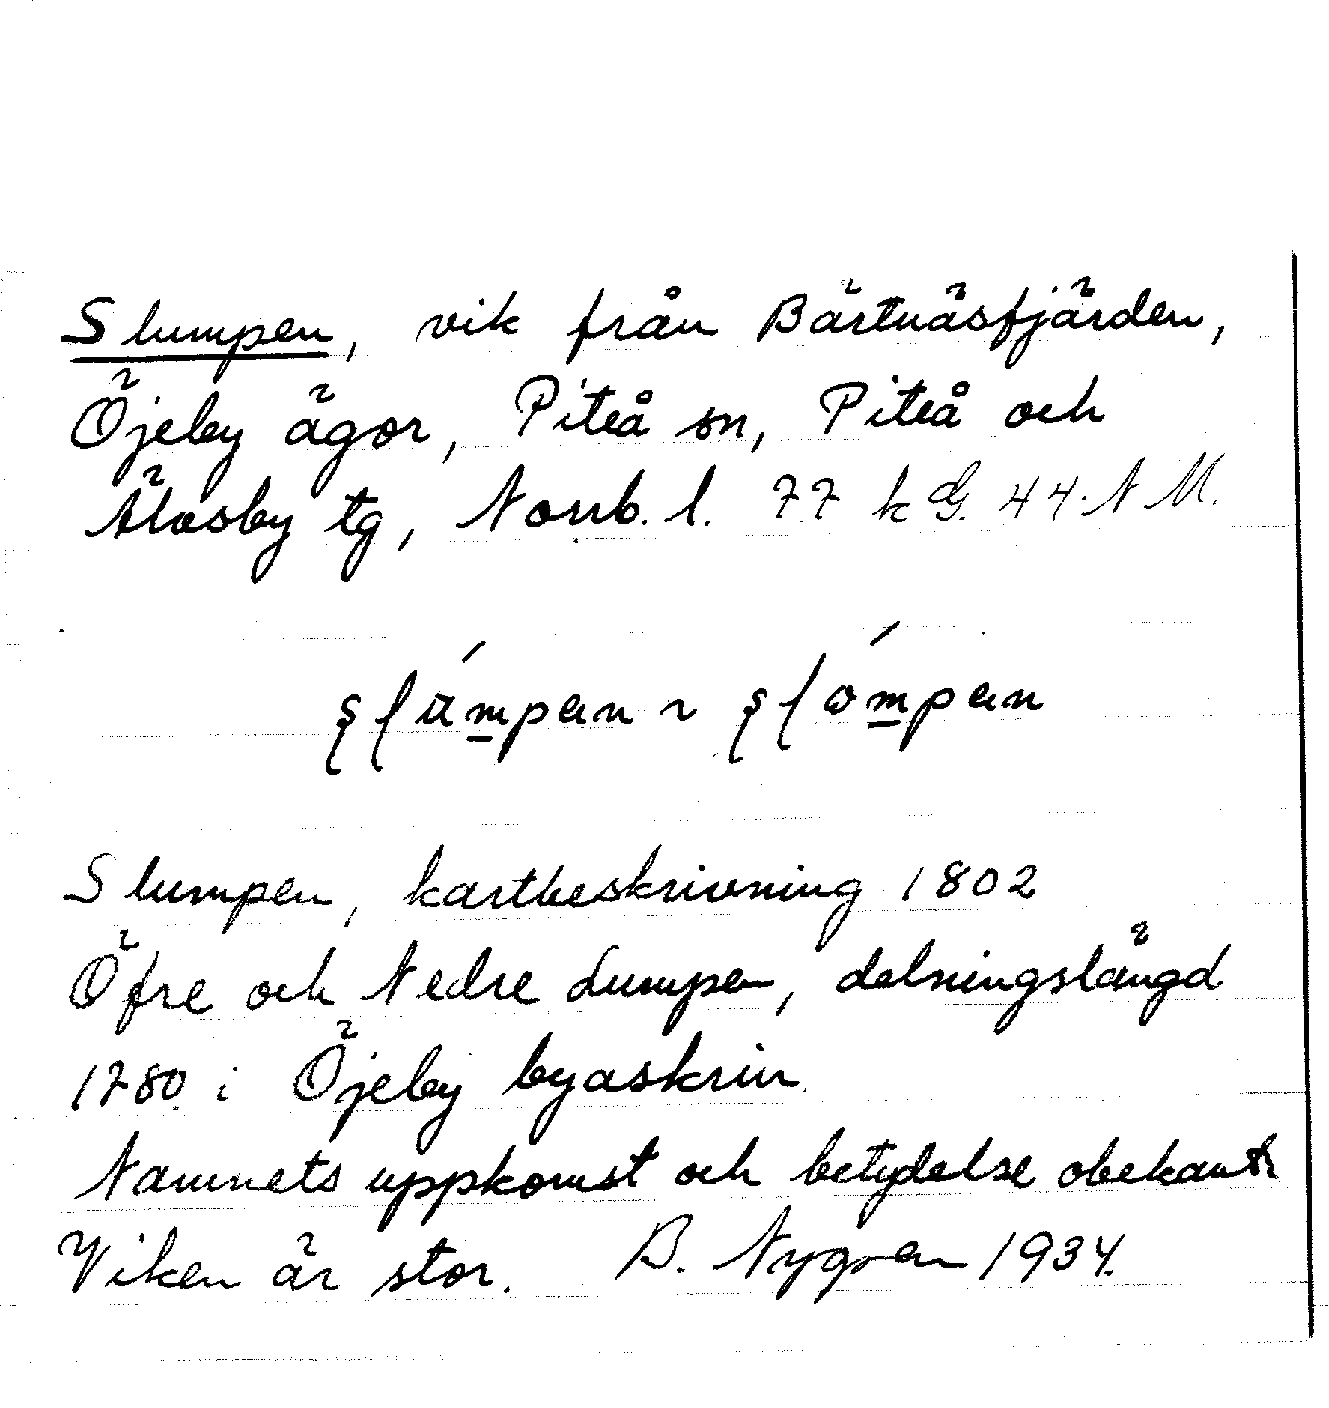 Slumpen, vik från Bärtnäsfjärden,
Öjeby ägor, Piteå sn, Piteå och
Älvsby tg, Norrb. l. 77 k G. 44 N M.
Slumpen, kartbeskrivning 1802
Öfre och Nedre Lumpen, delningslängd
1780 i Öjeby byaskrin
Namnets uppkomst och betydelse obekant
Viken är stor. B. Nygren 1934.